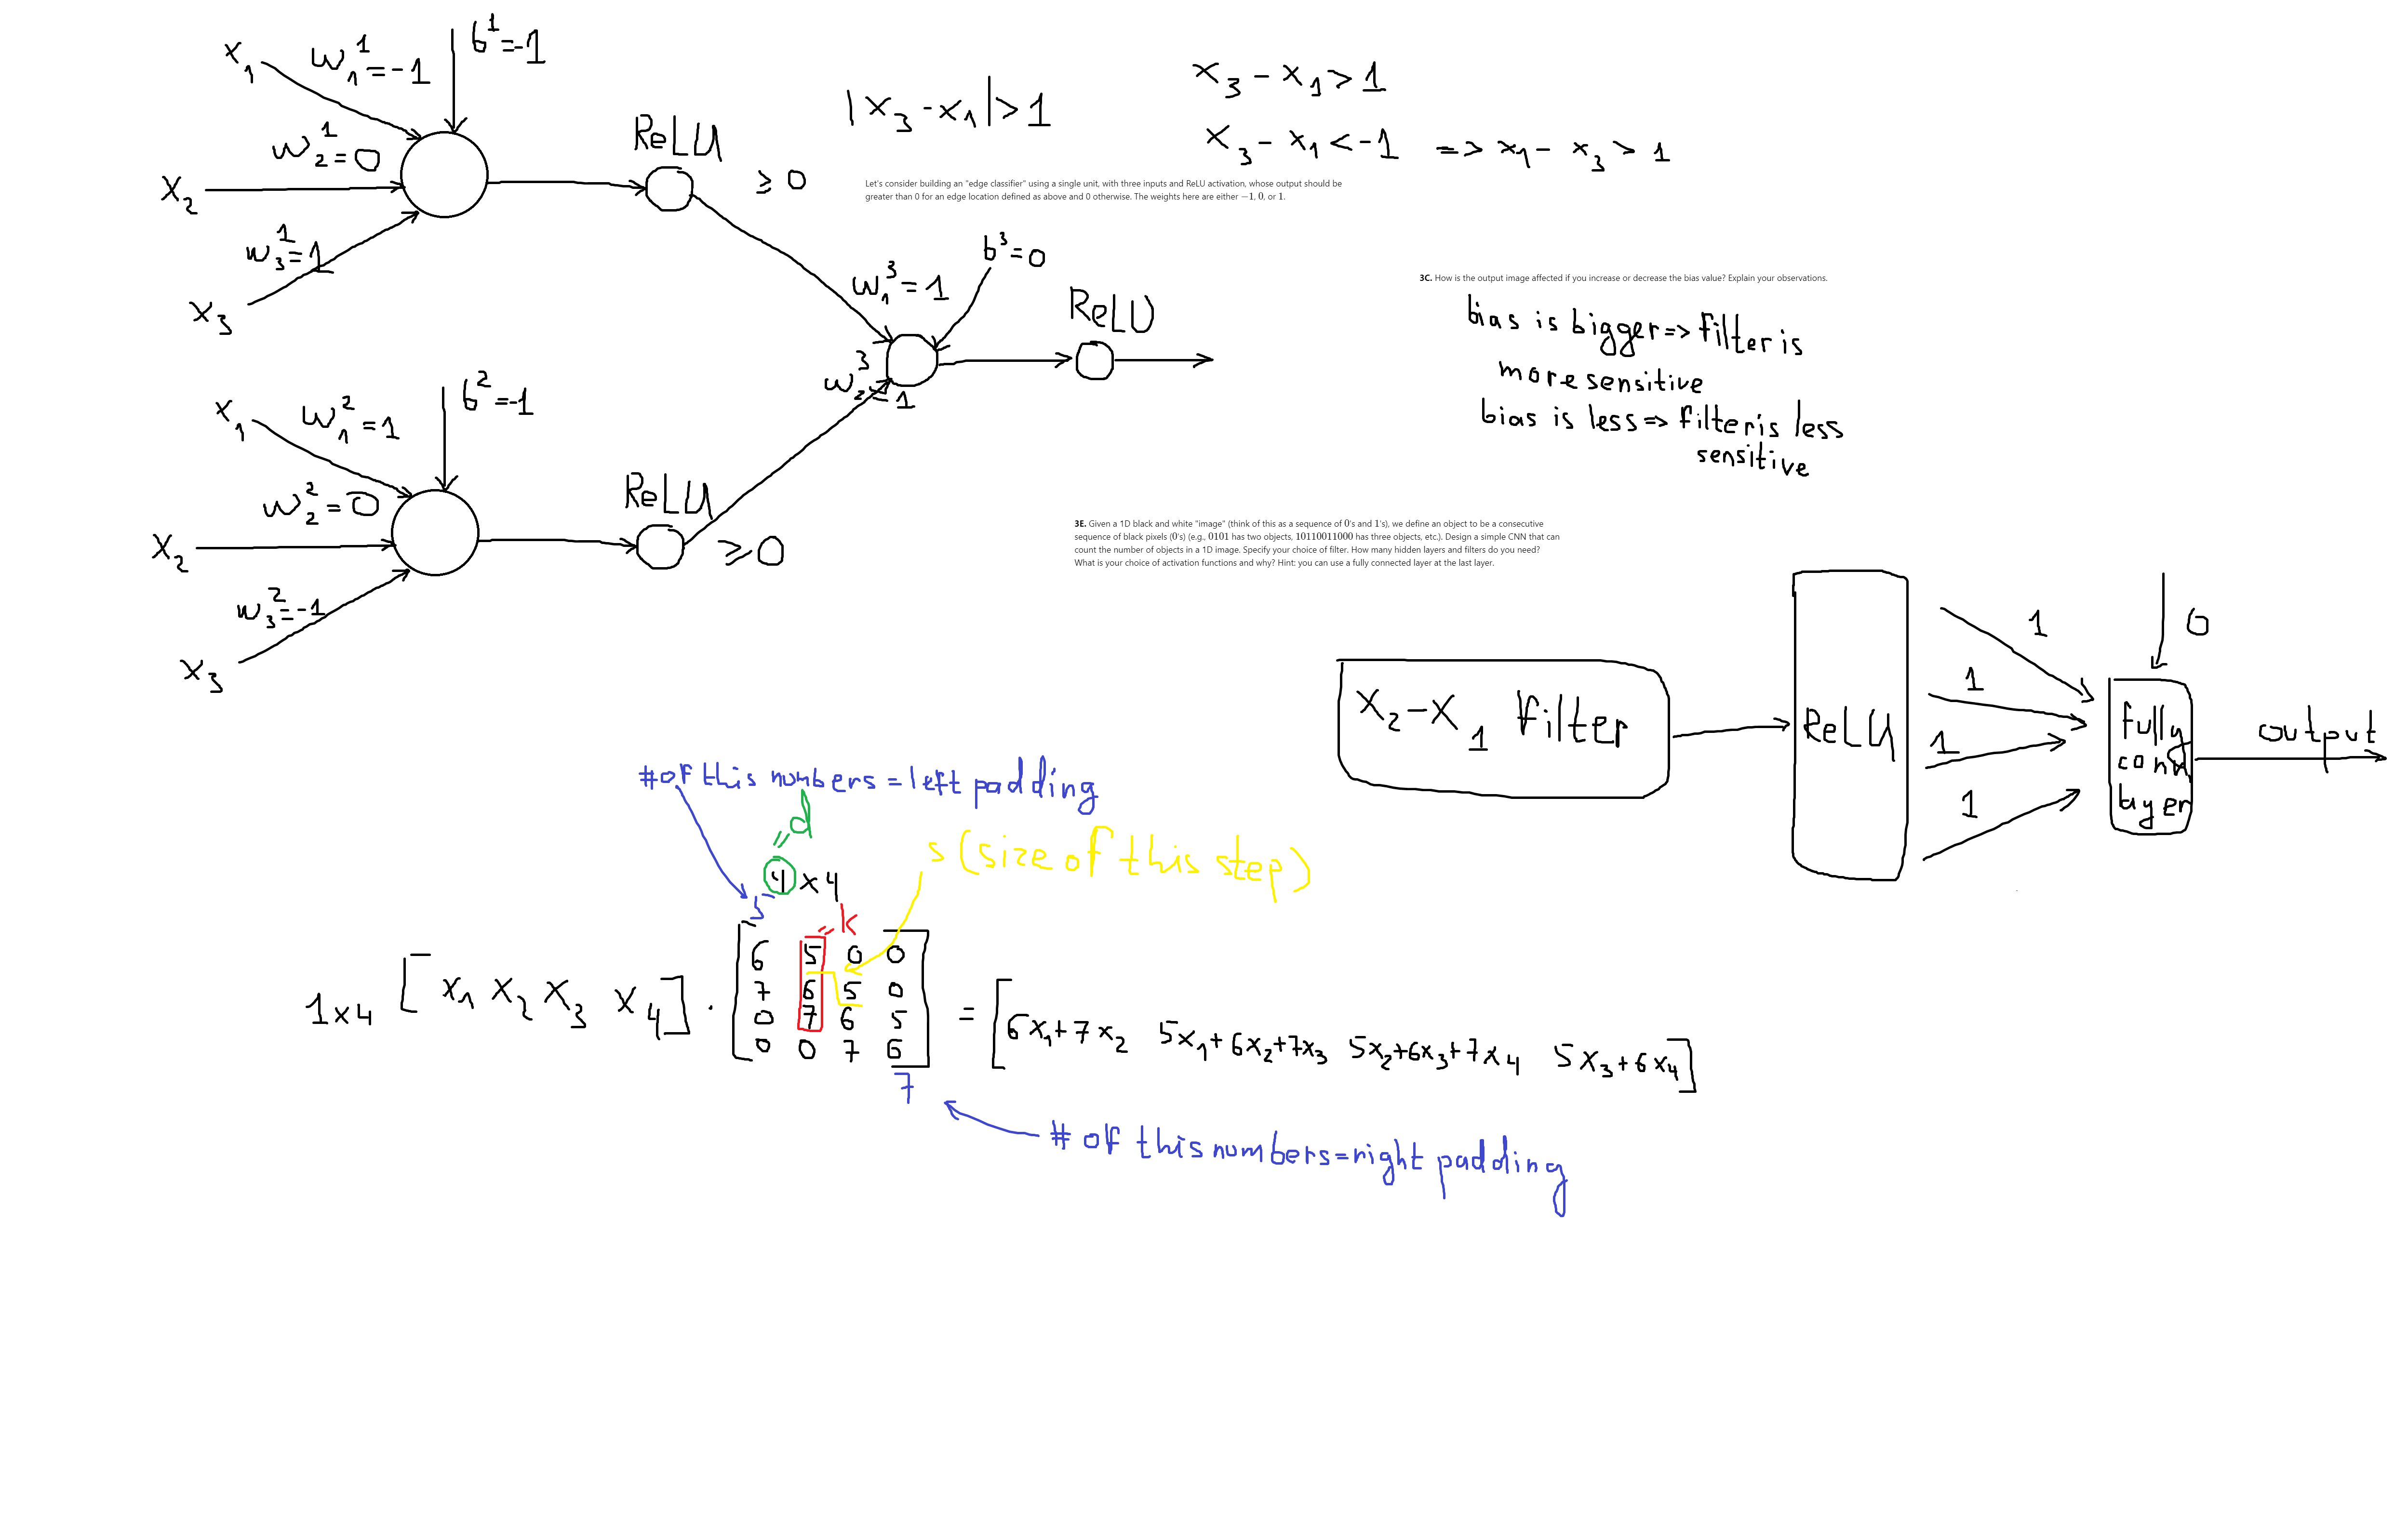 x₁ w₁¹=-1 b¹=-1
w₂¹=0
x₂
w₃¹=1
x₃
ReLU
≥ 0
|x₃-x₁|>1
x₃-x₁>1
x₃-x₁<-1 => x₁-x₃>1
Let's consider building an "edge classifier" using a single unit, with three inputs and ReLU activation, whose output should be
greater than 0 for an edge location defined as above and 0 otherwise. The weights here are either −1, 0, or 1.
b³=0
w₁³=1
ReLU
w₂³=1
x₁ w₁²=1 b²=-1
w₂²=0
x₂
w₃²=-1
x₃
ReLU
≥0
3C. How is the output image affected if you increase or decrease the bias value? Explain your observations.
bias is bigger=> filter is
more sensitive
bias is less=> filter is less
sensitive
3E. Given a 1D black and white "image" (think of this as a sequence of 0's and 1's), we define an object to be a consecutive
sequence of black pixels (0's) (e.g., 0101 has two objects, 10110011000 has three objects, etc.). Design a simple CNN that can
count the number of objects in a 1D image. Specify your choice of filter. How many hidden layers and filters do you need?
What is your choice of activation functions and why? Hint: you can use a fully connected layer at the last layer.
x₂-x₁ filter
ReLU
1
1
1
1
0
fully
conn
layer
output
# of this numbers=left padding
=d
s (size of this step)
4x4
5
=k
1x4 [x₁ x₂ x₃ x₄] ·
6 5 0 0
7 6 5 0
0 7 6 5
0 0 7 6
7
= [6x₁+7x₂ 5x₁+6x₂+7x₃ 5x₂+6x₃+7x₄ 5x₃+6x₄]
# of this numbers=right padding